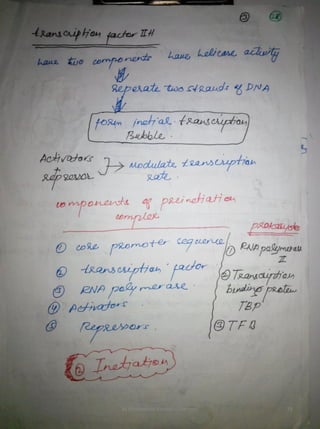 transcription factor II H
have two components have helicase activity
Seperate two strands of DNA
form inetial transcription
Bubble.
Activators
+
repressor } → Modulate transcription
rate.
components of preinetiation
complex
prokaryote
① core promoter sequence
② transcription factor
③ RNA polymerase.
④ Activators
⑤ Repressors.
① RNA polymerase
II
② Transcription
binding protein
TBP
③ TFB
② Inetiation